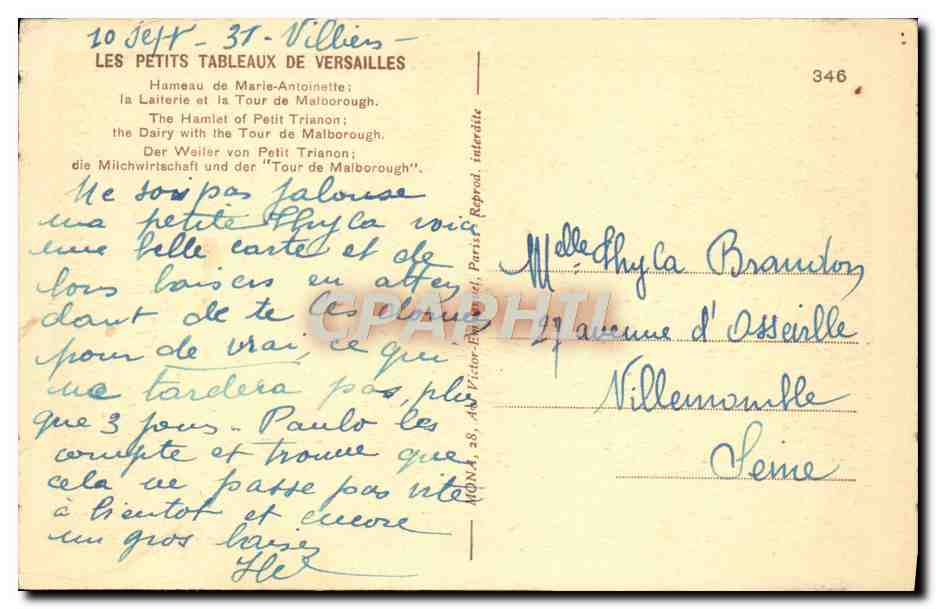 10 Sept - 31 - Villiers -
LES PETITS TABLEAUX DE VERSAILLES
Hameau de Marie-Antoinette;
la Laiterie et la Tour de Malborough.
The Hamlet of Petit Trianon;
the Dairy with the Tour de Malborough.
Der Weiler von Petit Trianon;
die Milchwirtschaft und der "Tour de Malborough".
Ne sois pas jalouse
ma petite Thyla voici
une belle carte et de
bons baisers en atten
dant de te les donner
pour de vrai, ce qui
ne tardera pas, plus
que 3 jours - Paulo les
compte et trouve que
cela ne passe pas vite
à bientot et encore
un gros baiser
MONA, 28, Av. Victor-Emmanuel, Paris. Reprod. interdite
346
Melle Thyla Brandon
27 avenue d'Osseville
Villemomble
Seine
CPAPHIL